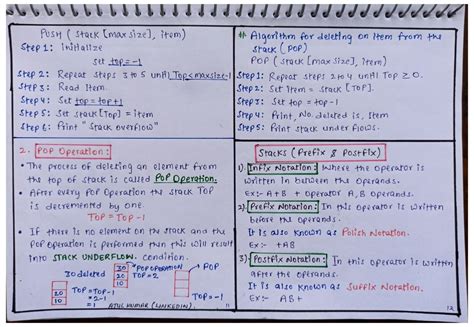 PUSH ( Stack [max size], item)
Step 1: initialize
Set top = -1
Step 2: Repeat steps 3 to 5 until Top<maxsize-1
Step 3: Read Item.
Step 4: Set top = top+1
Step 5: Set stack [Top] = item
Step 6: Print "stack overflow"
# Algorithm for deleting an item from the
stack (POP)
POP ( stack [max size], item)
Step 1: Repeat steps 2 to 4 until Top ≥ 0.
Step 2: Set item = stack [Top].
Step 3: Set top = top-1
Step 4: Print, No deleted is, Item
Step 5: Print stack under flows.
2. POP Operation:
• The process of deleting an element from
the top of stack is called POP Operation.
• After every POP Operation the stack TOP
is decremented by one.
TOP = TOP-1
• If there is no element on the stack and the
POP operation is performed then this will result
into STACK UNDERFLOW condition.
30 deleted
20
10
TOP = TOP-1
= 2-1
= 1
30 POP OPERATION
20 TOP = 2
10
POP
TOP = -1
ATUL KUMAR (LINKEDIN).
11
Stacks ( Prefix & Postfix)
1). Infix Notation: Where the operator is
written in between the operands.
Ex:- A+B + operator A,B operands.
2). Prefix Notation: In this operator is written
before the operands.
It is also known as Polish Notation.
Ex:- +AB
3). Postfix Notation: In this operator is written
after the operands.
It is also known as Suffix Notation.
Ex:- AB+
12